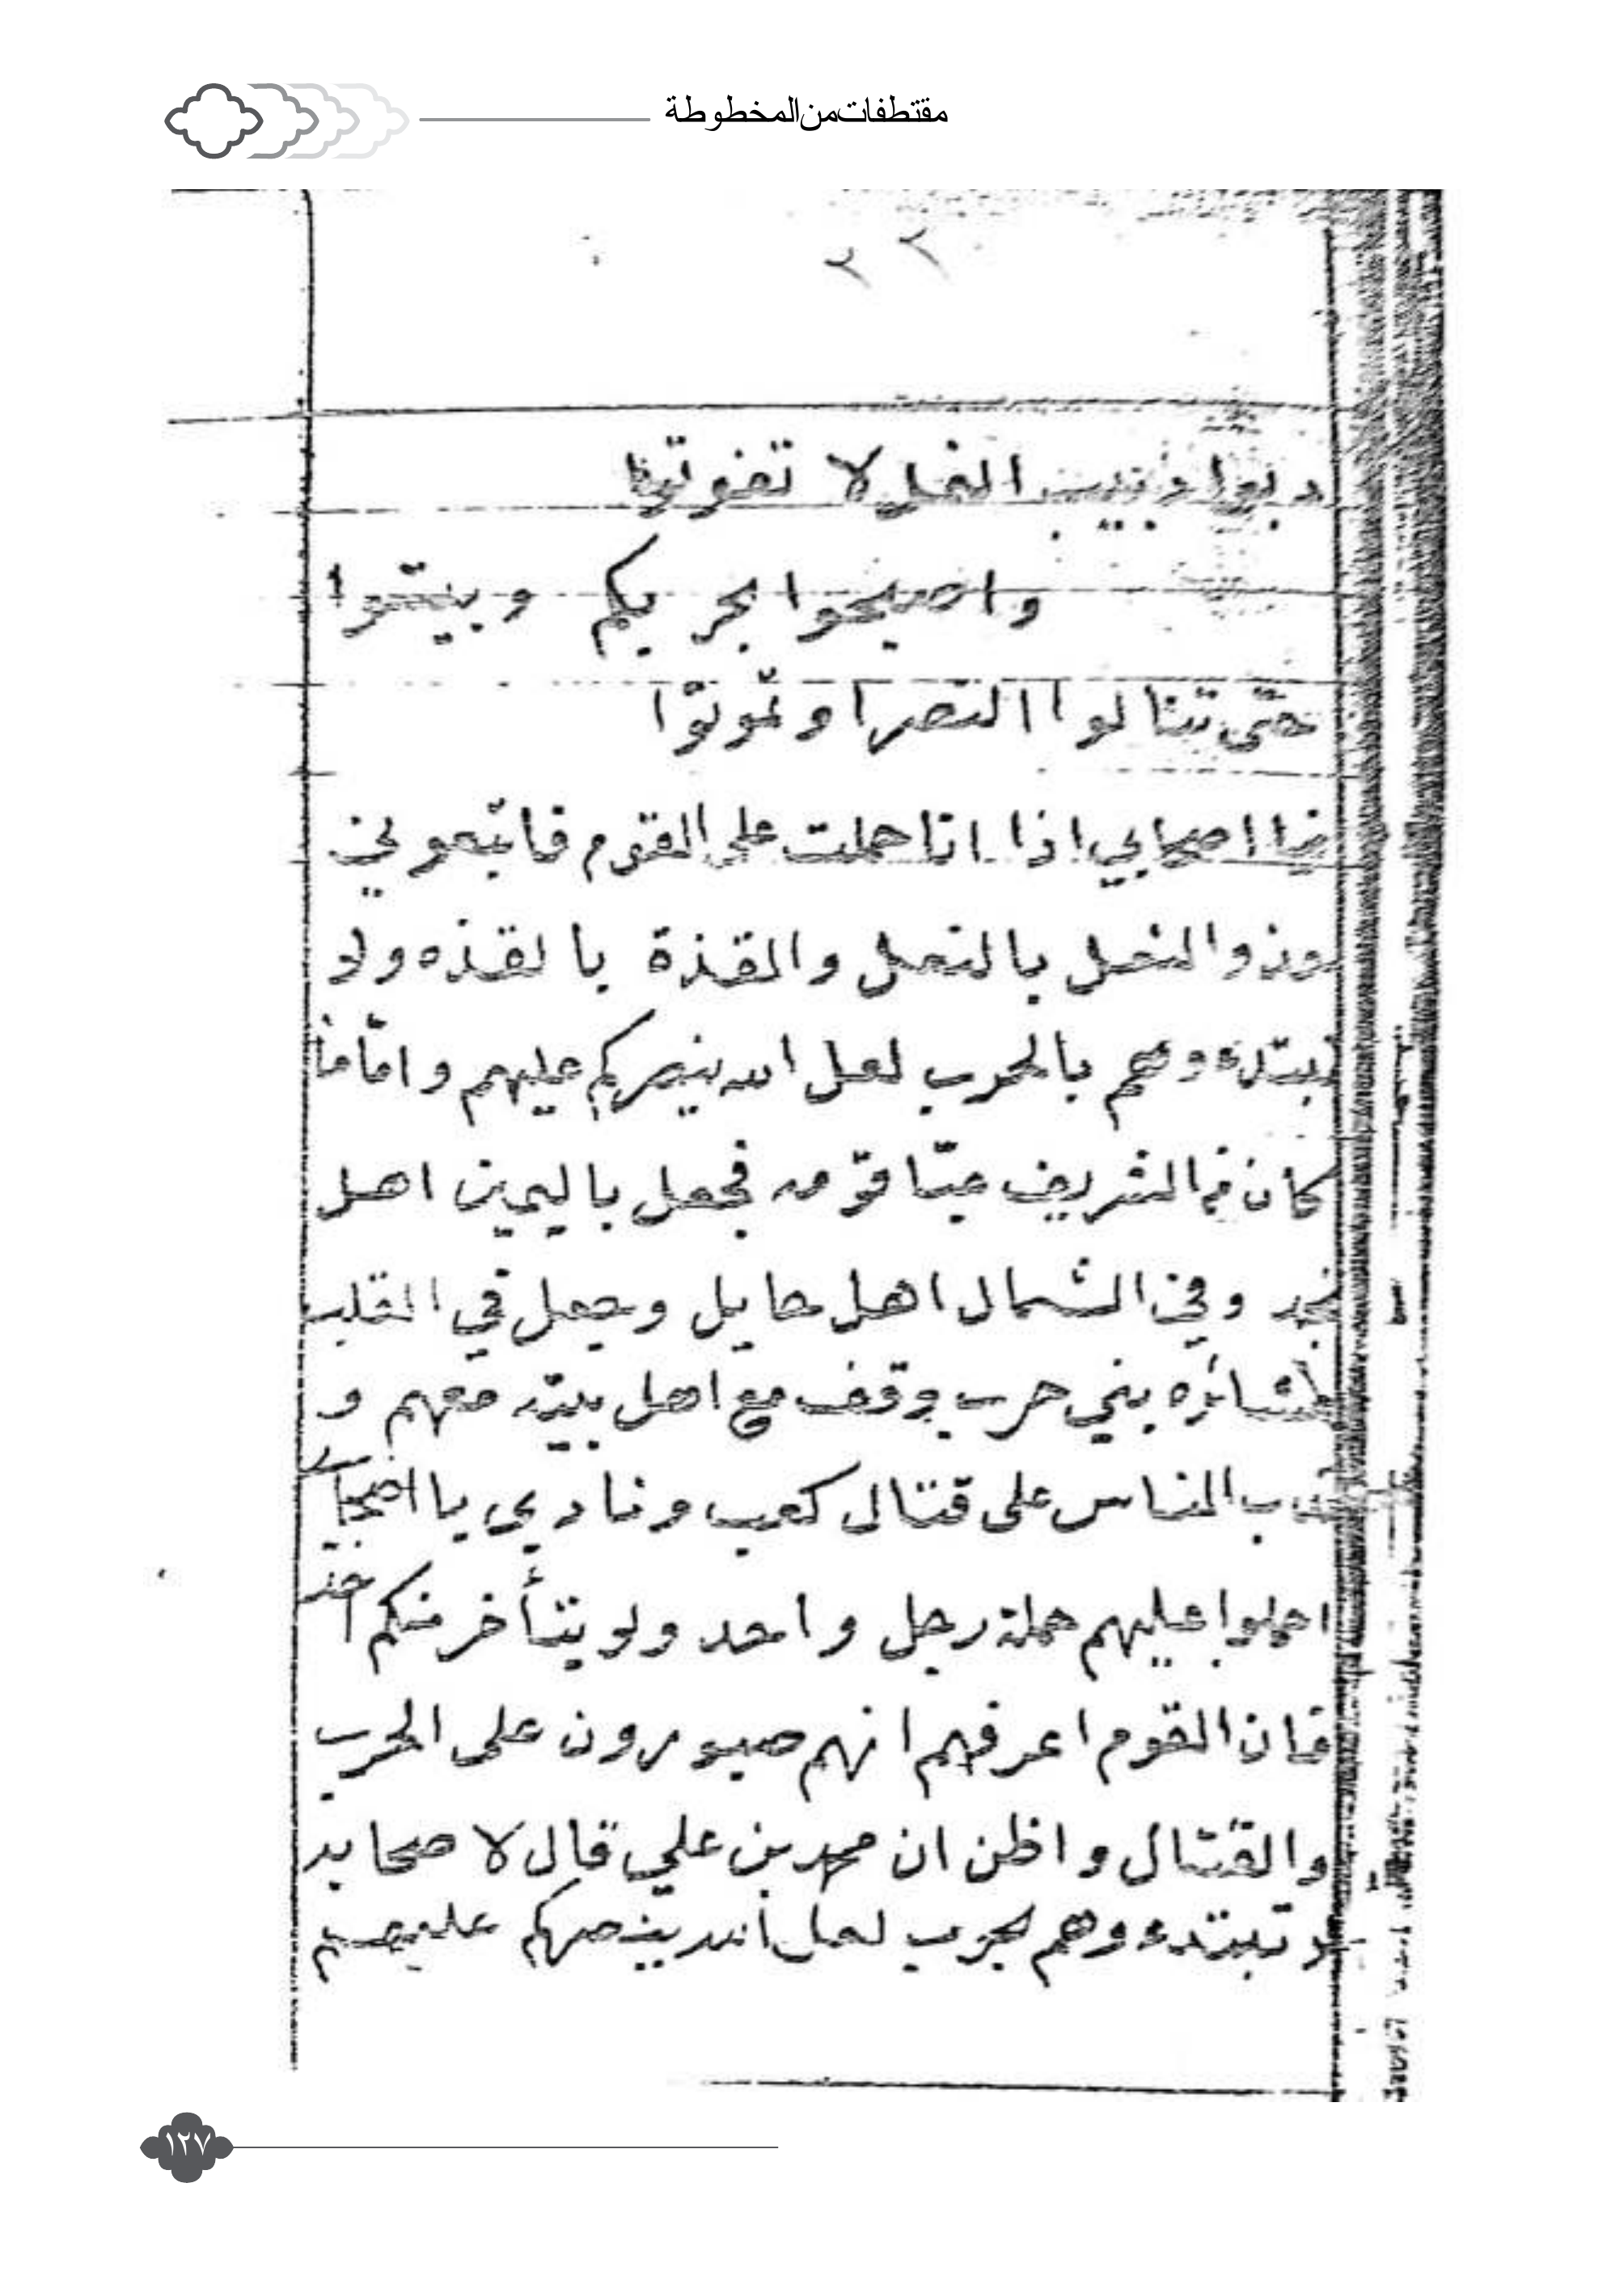 مقتطفات من المخطوطة
٢٢
دبوا دبيب النمل لا تفوتوا
واصبحوا بحربكم وبيتوا
حتّى تنالوا النصرا وتموتوا
يا اصحابي اذا انا حملت على القوم فاتبعوني
والنعل بالنعل والقذة بالقذه ولا
تبتدءوهم بالحرب لعل الله ينصركم عليهم وامّا ما
كان من الشريف عبّا قوّمه فجعل باليمين اهل
نجد وفي الشمال اهل حايل وجعل في القلب
عشائره بني حرب ووقف مع اهل بيته معهم و
الناس على قتال كعب ونادى يا اصحابي
احملوا عليهم حملة رجل واحد ولو يتأخر منكم احد
فان القوم اعرفهم انهم صبورون على الحرب
والقتال واظن ان محمد بن علي قال لاصحابه
لا تبتدءوهم بحرب لعل الله ينصركم عليهم
١٢٧